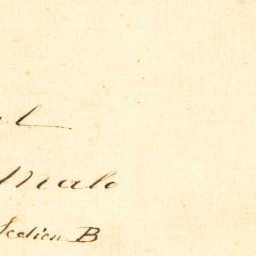 Male
Section B